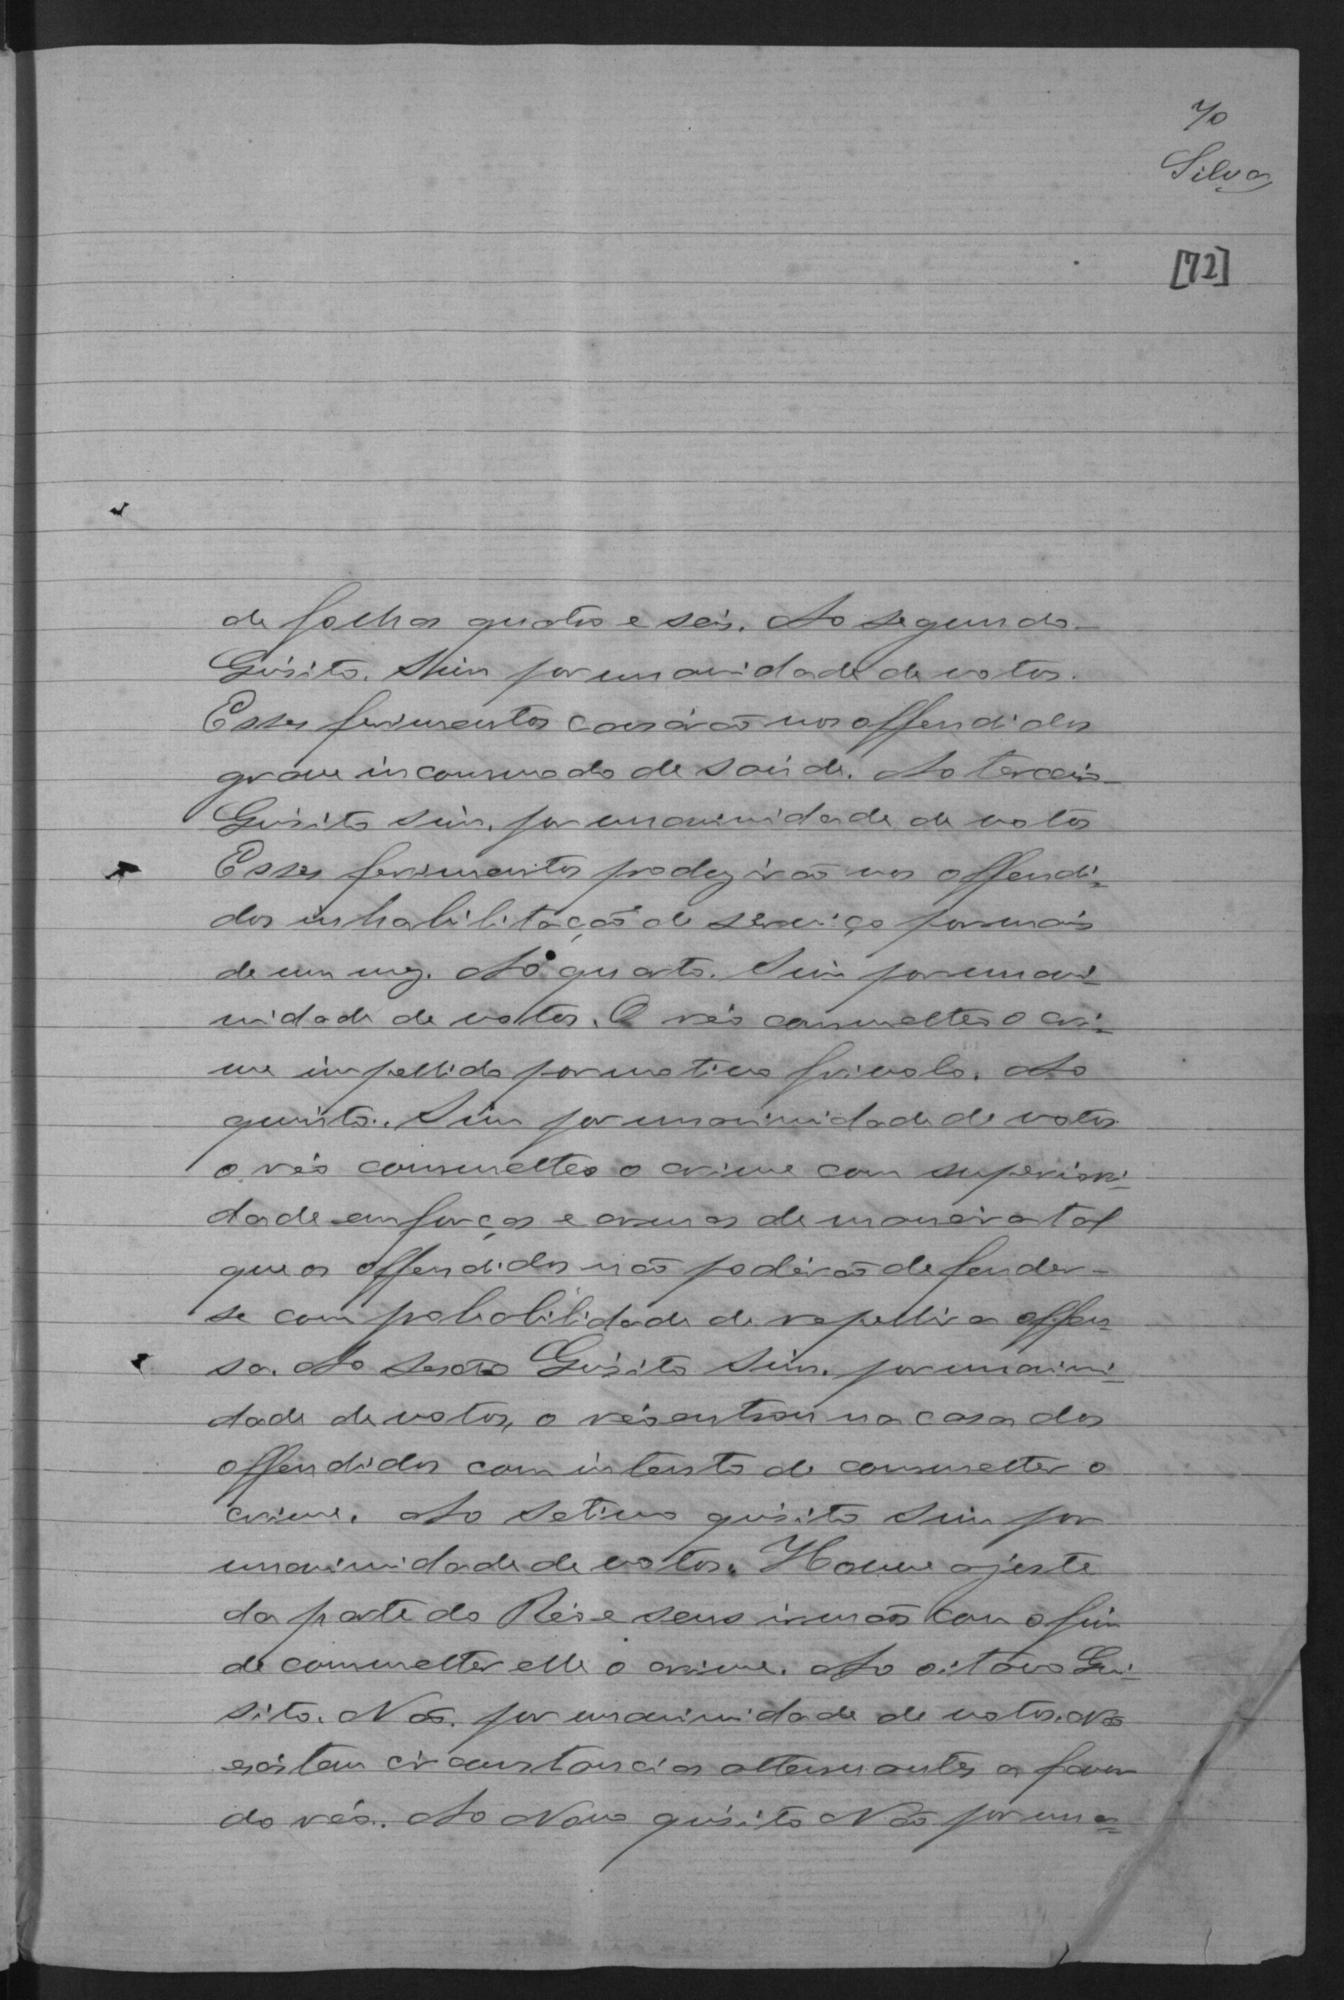 70
Silva
[72]
de folhas quatro e seis. Ao segundo
Quisito. Sim por unanidade de votos.
Esses ferimentos causárão nos offendidos
grave incommodo de saúde. Ao terceiro
Quisito sim. por unanimidade de votos
Esses ferimentos produzirão nos offendi=
dos inhabilitação de serviço por mais
de um mez. Ao quarto. Sim por unani=
midade de votos. O réo commetteo o cri=
me impellido por motivo frivolo. Ao
quinto. Sim por unanimidade de votos
o réo commetteo o crime com superiori=
dade em forças e armas de maneira tal
que os offendidos não podérão defender-
se com probabilidade de repellir a offen=
sa. Ao sexto Quisito Sim. por unanimi=
dade de votos, o réo entrou na casa dos
offendidos com intento de commetter o
crime. Ao Setimo quisito Sim por
unanimidade de votos. Houve ajuste
da parte do Réo e seus irmãos com o fim
de commetter elle o crime. Ao oitavo Qui=
sito. Não. por unanimidade de votos. Não
existem circunstancias attenuantes a favor
do réo. Ao Nono quisito Não por una=